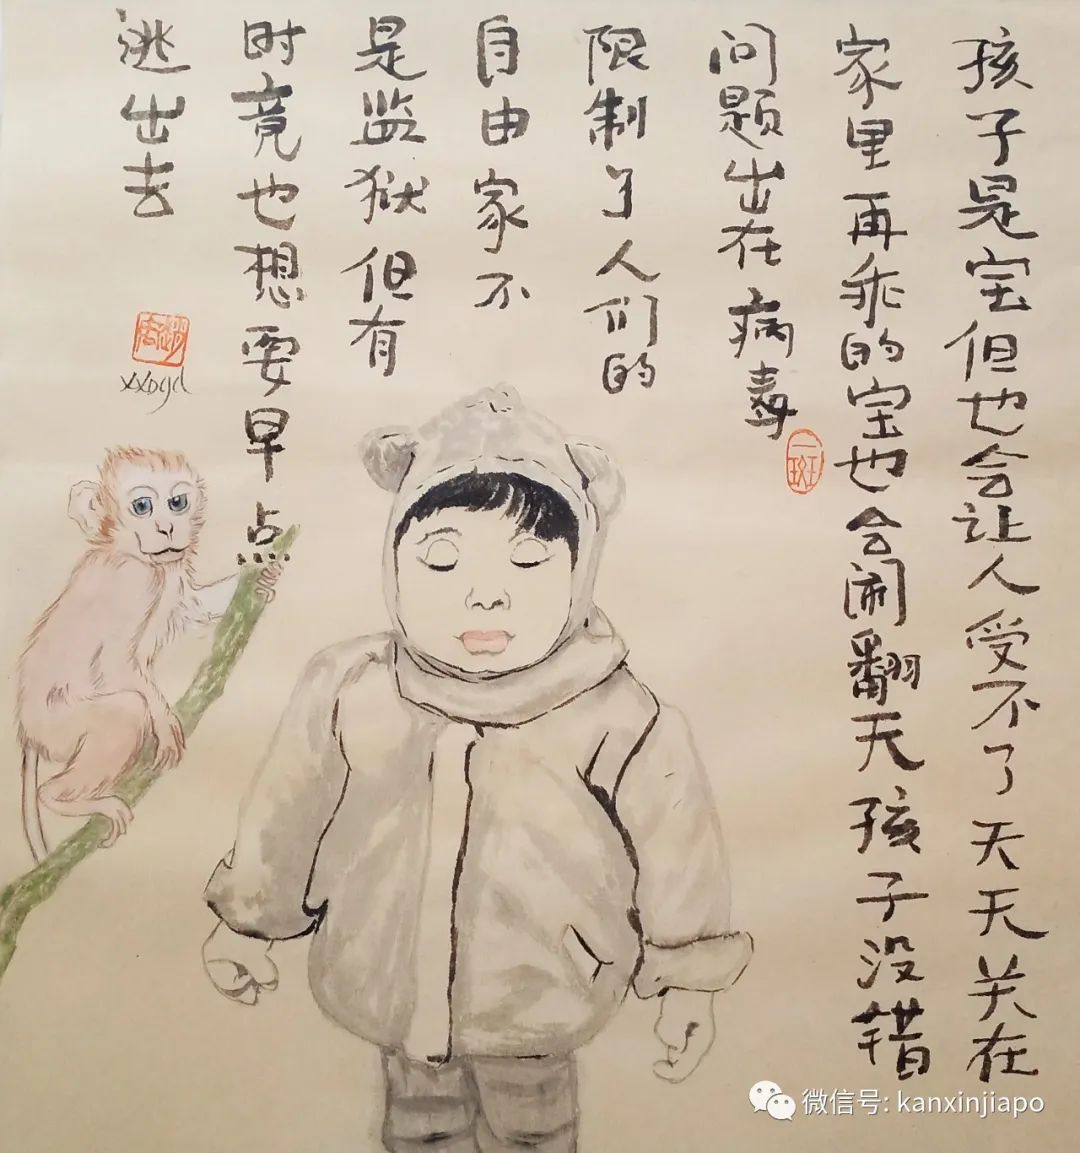 孩子是宝但也会让人受不了天天关在
家里再乖的宝也会闹翻天孩子没错
问题出在病毒
限制了人们的
自由家不
是监狱但有
时竟也想要早点
逃出去
一斑
微信号: kanxinjiapo